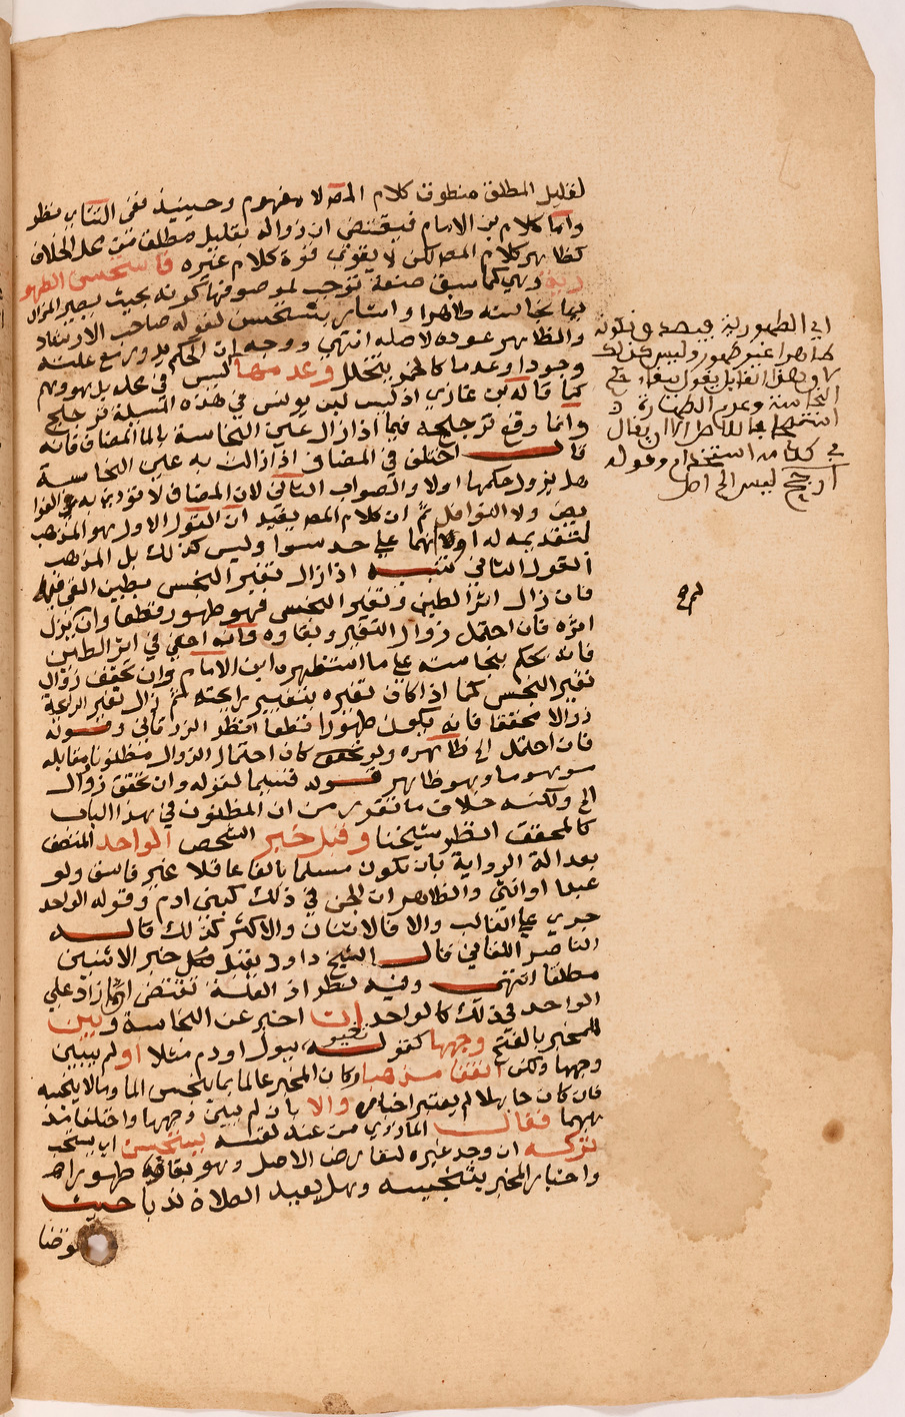 لقليل المطلق منطوق كلام المص لا مفهوم وحينيذ ففي التتاي نظر
واما كلام بن الامام فيقتضي ان زواله بقليل مطلق من محل الخلاف
كظاهر كلام المص لكن لا يقوي قوة كلام غيره فاستحسن الطهو
رية وهي كما سبق صفة توجب لموصوفها كونه بحيث يصير المزال
بها نجاسته طاهرا واشار بتستحسن لقوله صاحب الارشاد
والظاهر عوده لاصله انتهي ووجه ان الحكم يدور مع علته
وجودا وعدما كالخمر يتخلل وعدمها ليس في محله بل هو وهم
كما قاله بن غازي اذ ليس لبن يونس في هذه المسيلة ترجيح
وانما وقع ترجيحه فيما اذا زال عين النجاسة بالما المضاف فانه
قال اختلف في المضاف اذا زالت به عين النجاسة
هل يزول حكمها اولا والصواب الثاني لان المضاف لا تودي به الفرا
يض ولا النوافل ثم ان كلام المص يفيد ان القول الاول هو المذهب
لتقديمه له اولا انهما علي حد سوا وليس كذلك بل المذهب
القول الثاني تنبيه اذا زال تغير النجس بطين القي فيه
فان زال اثر الطين وتغير النجس فهو طهور قطعا وان لم يزل
اثره فان احتمل زوال التغير وبقاوه فانه اعني في اثر الطين
فانه يحكم بنجاسته علي ما استظهره ابن الامام وان تحقق زوال
تغير النجس كما اذا كان تغيره بتغيير رايحته ثم زال تغير الرايحة
زوالا محققا فانه يكون طهورا قطعا انظر الزرقاني وقوله
فان احتمل الي ظاهره ولو كان احتمال الزوال مظنونا مقابله
موهوما وهو ظاهر قوله قسيما لقوله وان تحقق زوال
الي ولكنه خلاف ما تقرر من ان المظنون في هذا الباب
كالمحقق انظر شيخنا وقبل خبر الشخص الواحد المتصف
بعدالة الرواية بان يكون مسلما بالغا عاقلا غير فاسق ولو
عبدا او انثي والظاهر ان الجن في ذلك كبني ادم وقوله الواحد
جري علي الغالب والا فالاثنان والاكثر كذلك قال
الناصر اللقاني قال الشيخ داود يقبل خبر الاثنين
مطلقا انتهي وفيه نظر اذ العلة تقتضي ان ما زاد علي
الواحد في ذلك كالواحد ان اخبر عن النجاسة وبين
للمخبر بالفتح وجهها كقوله تغير ببول او دم مثلا او لم يبين
وجهها ولكن اتفقا مذهبا وكان المخبر عالما بما ينجس الما وما لا ينجسه
فان كان جاهلا لم يعتبر اخباره والا بان لم يبين وجهها واختلفا مذ
هبهما فقال المازري من عند نفسه يستحسن اي يستحب
تركه ان وجد غيره لتعارض الاصل وهو بقاوه طهورا
واخبار المخبر بتنجيسه وهل يعيد الصلاة ندبا حيث
توضا
اي الطهورية فيصدق بكونه
طاهرا غير طهور وليس كذلك
النجاسة وعدم الطهارة
ان يقال
في كلامه استخدام وقوله
ارجح ليس الي اصل